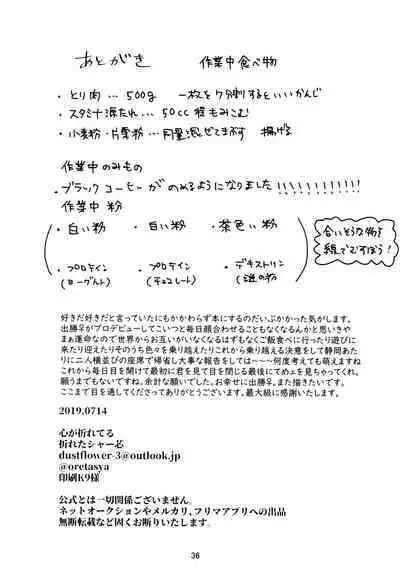 あとがき 作業中食べ物
・とり肉…500g 一枚を7分割するといいかんじ
・スタミナ源たれ…50cc程もみこむ
・小麦粉・片栗粉…同量混ぜてまぶす 揚げる
作業中のみもの
・ブラックコーヒーがのめるようになりました!!!!!!!!!!!
作業中 粉
・白い粉 ・白い粉 ・茶色い粉
・プロテイン(ヨーグルト) ・プロテイン(チョコレート) ・デキストリン(謎の粉)
合いそうな物を組でですぼう!
好きだ好きだと言っていたにもかかわらず本にするのだいぶかかった気がします。
出勝♀がプロデビューしてこいつと毎日顔合わせることもなくなるんかと思いきや
まぁ運命なので世界からお互いがいなくなるはずもなくご飯食べに行ったり遊びに
来たり迎えたりそのうち色々を乗り越えたりこれから乗り越える決意をして静岡あた
りに二人横並びの座席で帰省し大事な報告をしては~~~何度考えても萌えますね
これから毎日目を開けて最初に君を見て目を閉じる最後にてめェを見ちゃってくれ。
願うまでもないですね。余計な願いでした。お幸せに出勝♀。また描きたいです。
ここまで目を通してくださってありがとうございます。最大級に感謝いたします。
2019.0714
心が折れてる
折れたシャー芯
dustflower-3@outlook.jp
@oretasya
印刷K9様
公式とは一切関係ございません。
ネットオークションやメルカリ、フリマアプリへの出品
無断転載など固くお断りいたします。
36